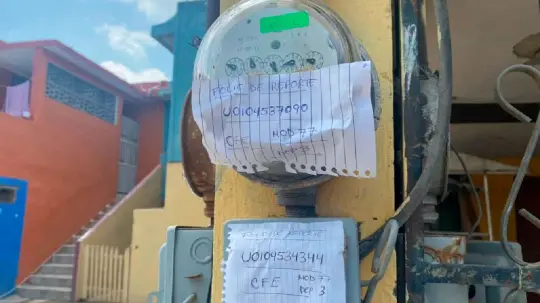 FOLIO DE REPORTE
U0104537090
CFE MOD 77
DEP 1
FOLIO DE REPORTE
U0104534344
CFE MOD 77
DEP 3